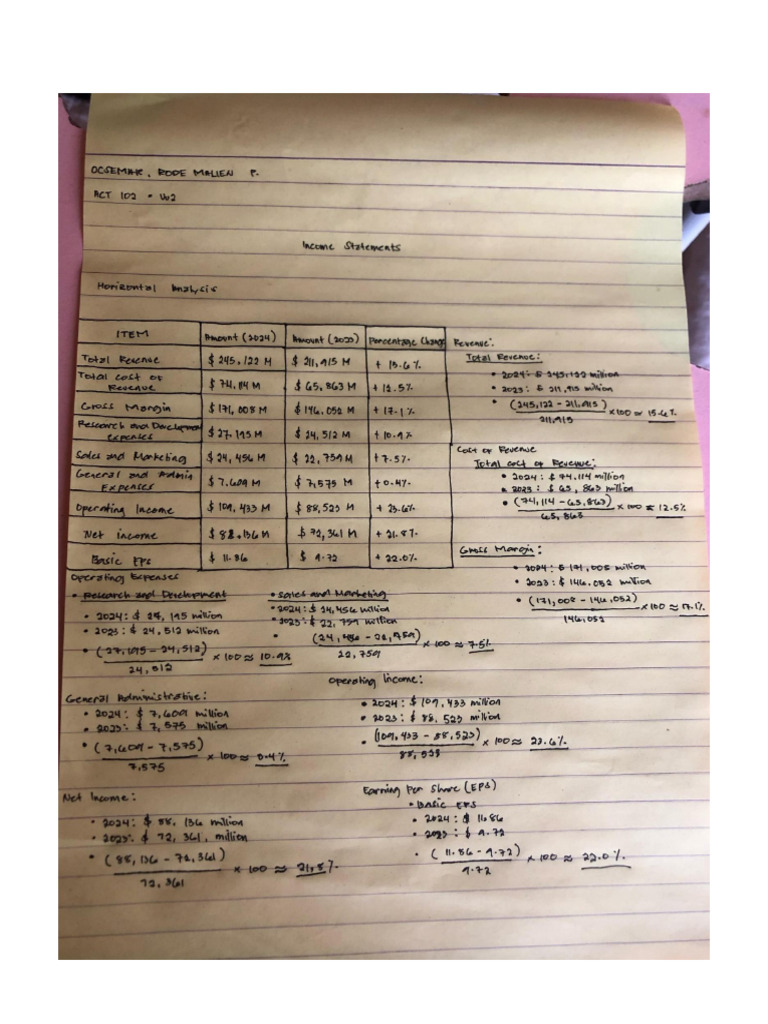 OCSEMAR, RODE MALIEN P.
ACT 102 - W2
Income Statements
Horizontal Analysis
ITEM Amount (2024) Amount (2023) Percentage Change
Total Revenue $ 245,122 M $ 211,915 M + 15.6%
Total cost of Revenue $ 74,114 M $ 65,863 M + 12.5%
Gross Margin $ 171,008 M $ 146,052 M + 17.1%
Research and Development expenses $ 27,195 M $ 24,512 M + 10.9%
Sales and Marketing $ 24,456 M $ 22,759 M + 7.5%
General and Admin Expenses $ 7,609 M $ 7,575 M + 0.4%
Operating Income $ 109,433 M $ 88,523 M + 23.6%
Net income $ 88,136 M $ 72,361 M + 21.8%
Basic EPS $ 11.86 $ 9.72 + 22.0%
Revenue:
Total Revenue:
• 2024: $ 245,122 million
• 2023: $ 211,915 million
• (245,122 - 211,915) / 211,915 × 100 ≈ 15.6%
Cost of Revenue
Total cost of Revenue:
• 2024: $ 74,114 million
• 2023: $ 65,863 million
• (74,114 - 65,863) / 65,863 × 100 ≈ 12.5%
Gross Margin:
• 2024: $ 171,008 million
• 2023: $ 146,052 million
• (171,008 - 146,052) / 146,052 × 100 ≈ 17.1%
Operating Expenses
• Research and Development
• 2024: $ 27,195 million
• 2023: $ 24,512 million
• (27,195 - 24,512) / 24,512 × 100 ≈ 10.9%
• Sales and Marketing
• 2024: $ 24,456 million
• 2023: $ 22,759 million
• (24,456 - 22,759) / 22,759 × 100 ≈ 7.5%
General Administrative:
• 2024: $ 7,609 million
• 2023: $ 7,575 million
• (7,609 - 7,575) / 7,575 × 100 ≈ 0.4%
Operating Income:
• 2024: $ 109,433 million
• 2023: $ 88,523 million
• (109,433 - 88,523) / 88,523 × 100 ≈ 23.6%
Net Income:
• 2024: $ 88,136 million
• 2023: $ 72,361, million
• (88,136 - 72,361) / 72,361 × 100 ≈ 21,8%
Earning Per Share (EPS)
• Basic EPS
• 2024: $ 11.86
• 2023: $ 9.72
• (11.86 - 9.72) / 9.72 × 100 ≈ 22.0%